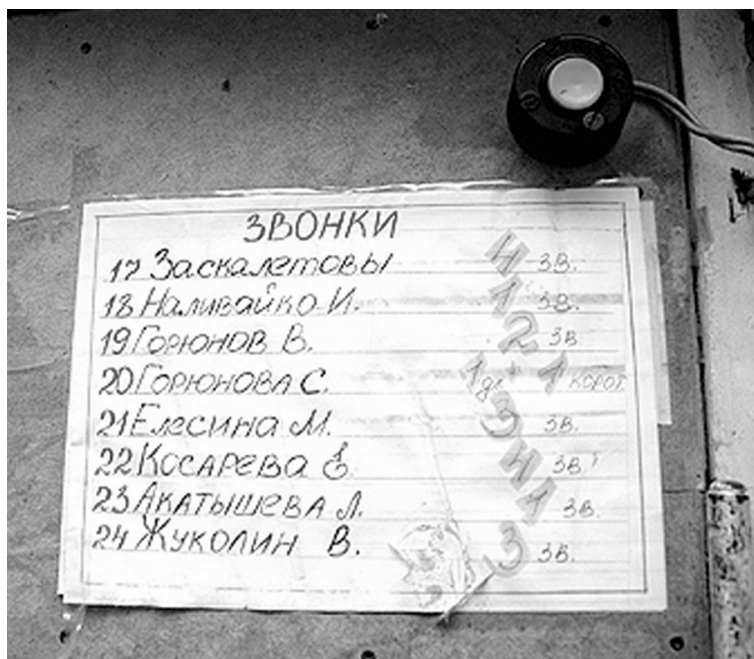 ЗВОНКИ
17 Заскалетовы зв.
18 Наливайко И. 1 зв.
19 Горюнов В. 2 зв
20 Горюнова С. 1дл 1 корот
21 Елесина М. 3 зв.
22 Косарева зв.
23 Акатышева Л. 1 зв.
24 Жуколин В. 3 зв.